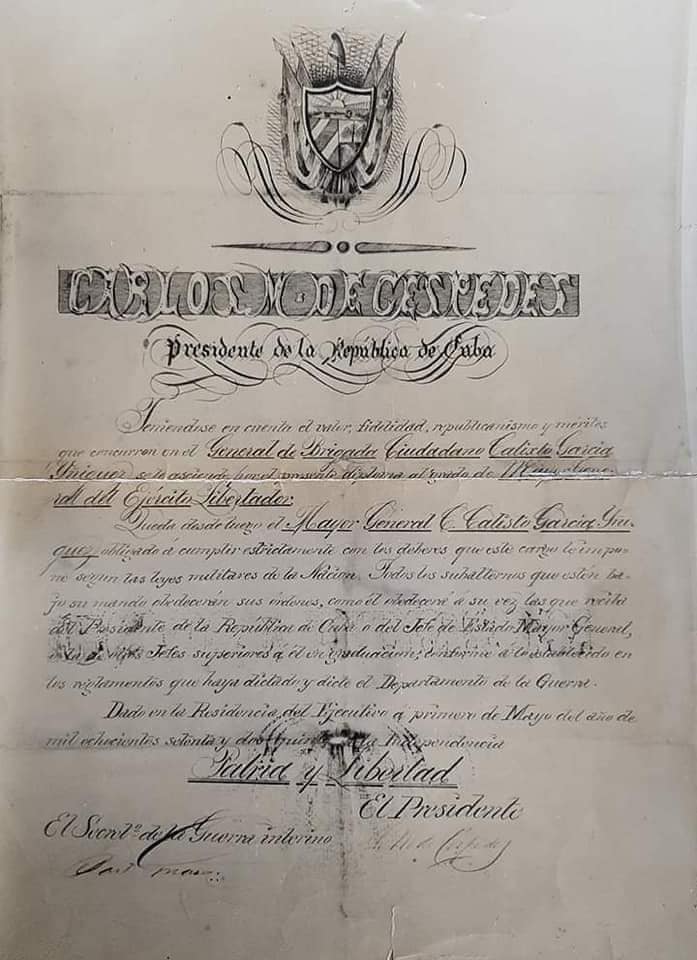 CARLOS M. DE CESPEDES
Presidente de la República de Cuba
Teniendose en cuenta el valor, fidelidad, republicanismo y méritos
que concurren en el General de Brigada Ciudadano Calixto Garcia
Yñiguez se le asciende por el presente diploma al grado de Mayor Gene-
ral del Ejército Libertador.
Queda desde luego el Mayor General C. Calisto Garcia Yñi-
guez obligado á cumplir estrictamente con los deberes que este cargo le impo-
ne segun las leyes militares de la Nacion. Todos los subalternos que estén ba-
jo su mando obedecerán sus órdenes, como él obedecerá á su vez las que reciba
del Presidente de la República de Cuba o del Jefe de Estado Mayor General,
Jefes superiores á él en graduacion, conforme á lo establecido en
los reglamentos que haya dictado y dicte el Departamento de la Guerra.
Dado en la Residencia del Ejecutivo á primero de Mayo del año de
mil ochocientos setenta y dos, quinto Independencia
Patria y Libertad
El Presidente
El Secretº. de la Guerra interino
de Cespedes